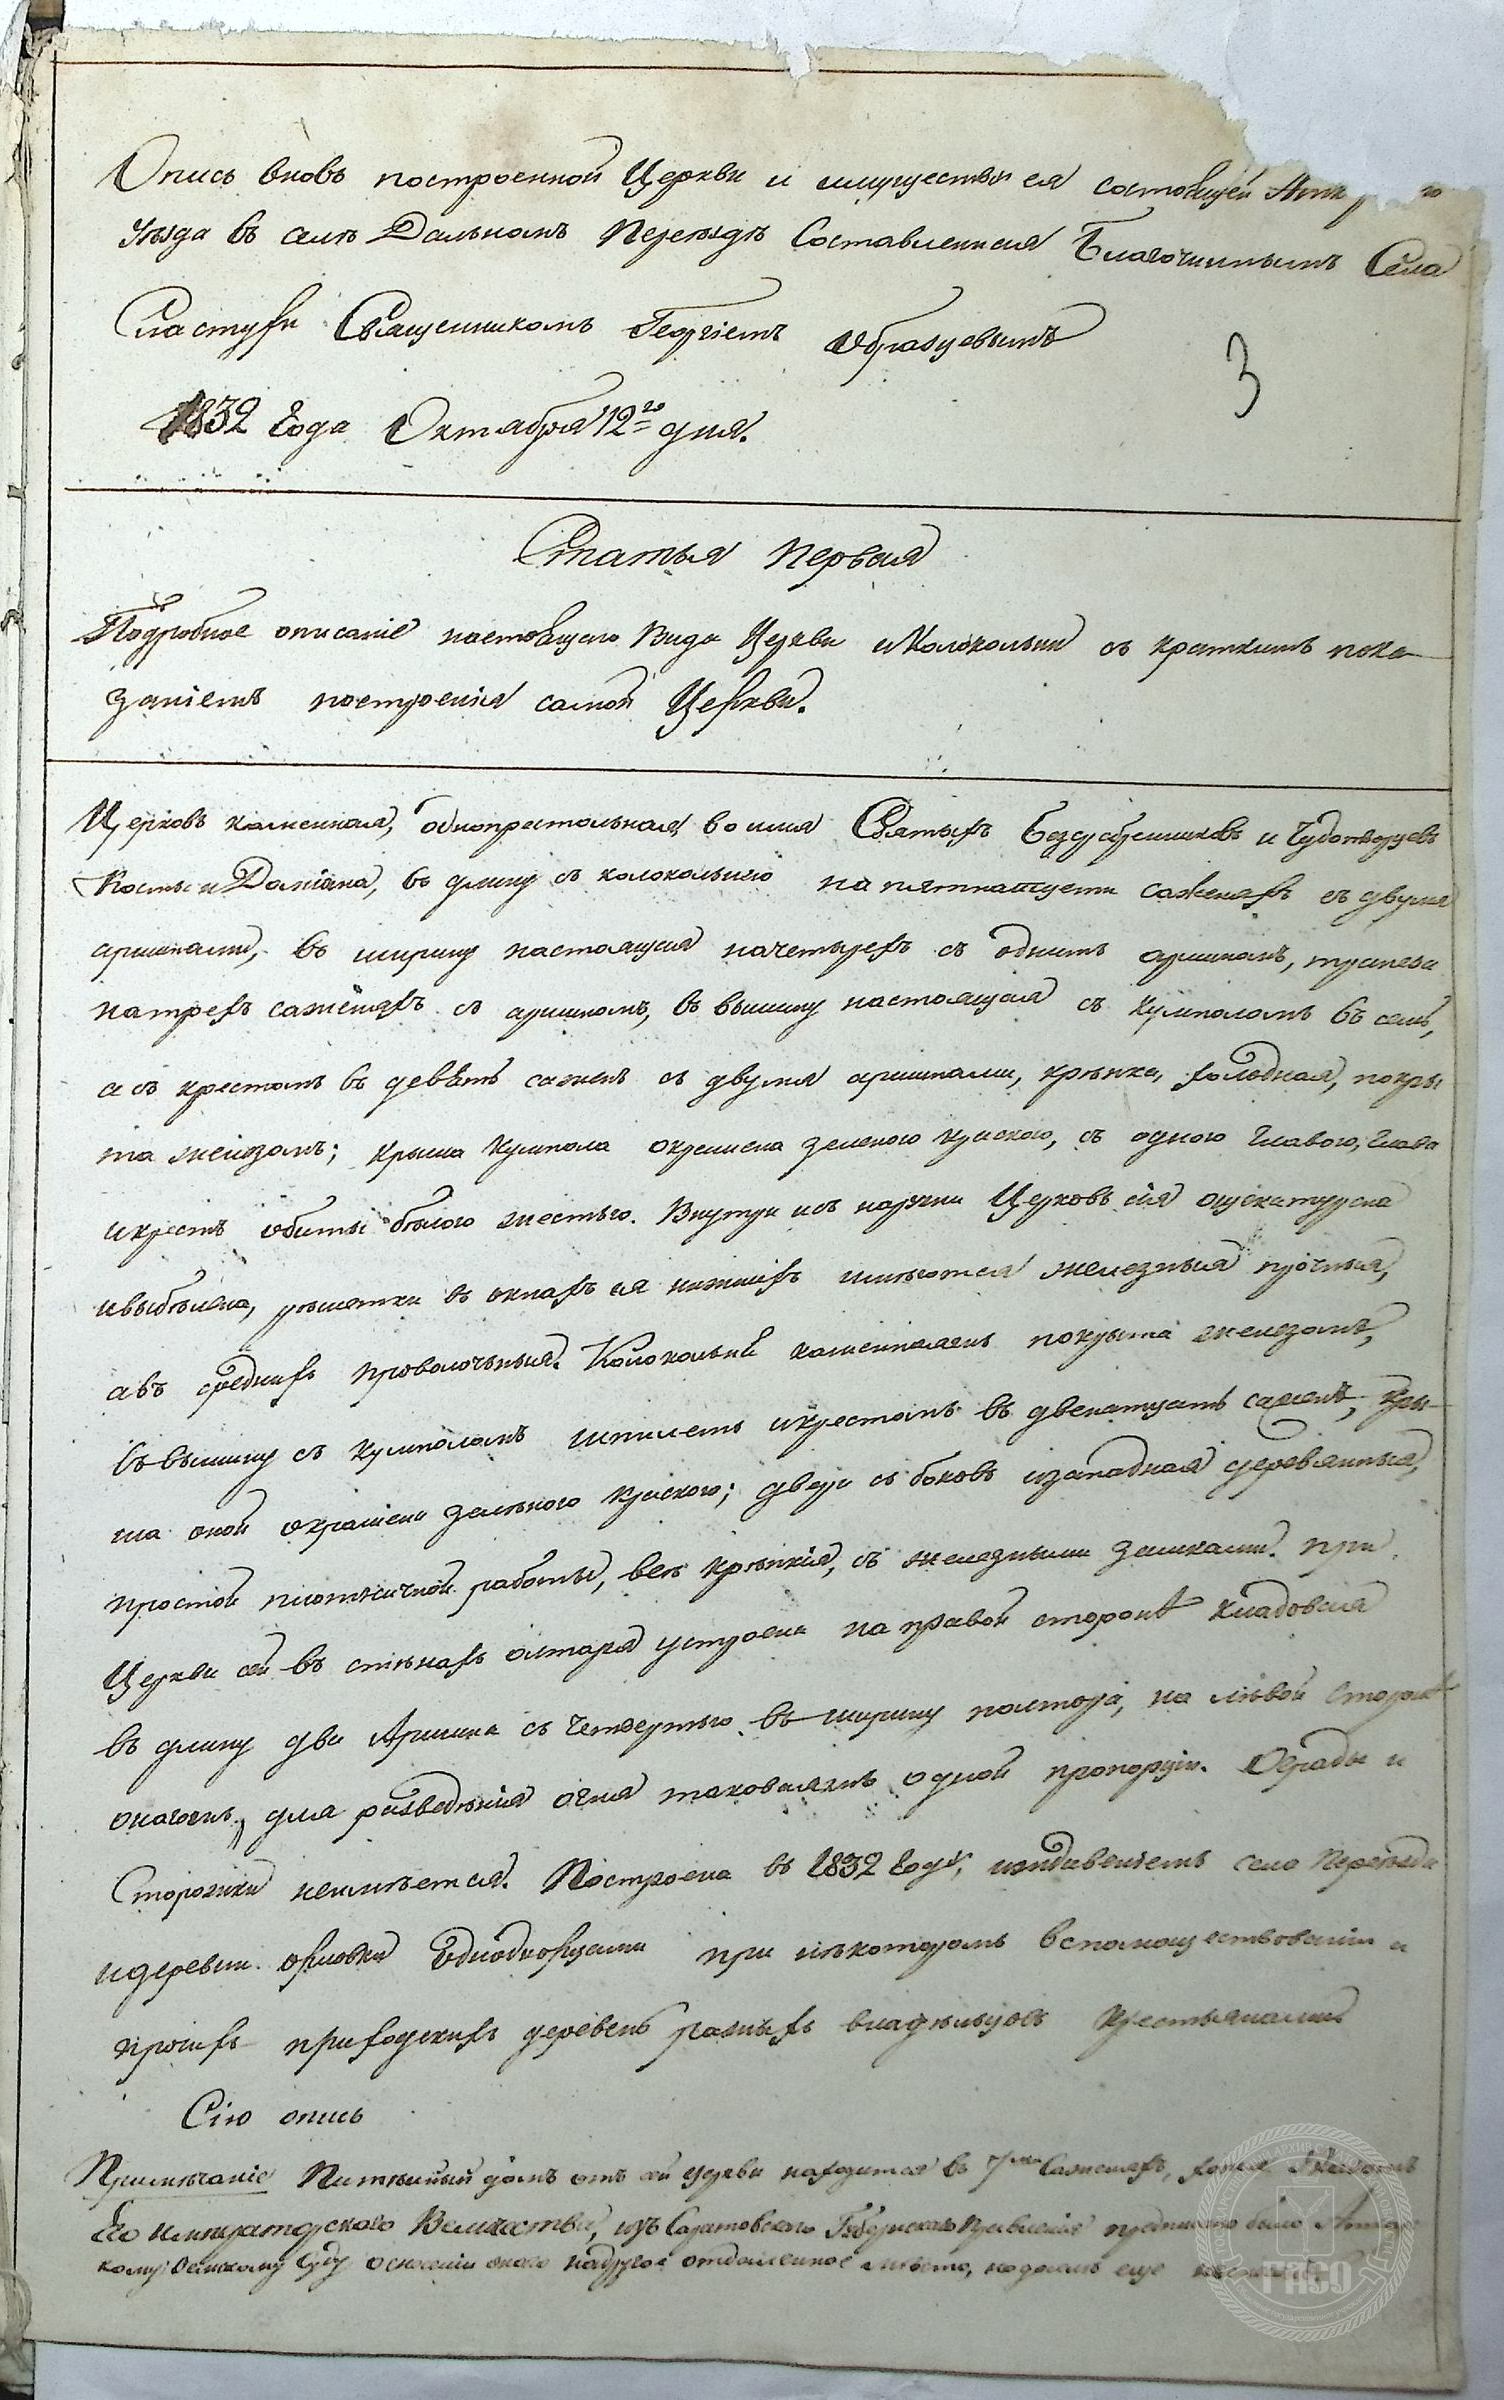 Опись вновь построенной Церкви и имущества ея состоящей Атка
уезда въ селе Дальномъ Переѣздѣ Составленная Благочиннымъ Села
Сластухи Священникомъ Георгіемъ Образцевымъ
3
1832 Года Октября 12го дня.
Статья Первая
Подробное описаніе настоящаго вида Церкви и Колокольни съ краткимъ пока-
заніемъ построенія самой Церкви.
Церковь каменная, однопрестольная, во имя Святыхъ безсребренниковъ и Чудотворцевъ
Космы и Даміана, въ длину съ колокольнею на пятнатцети саженяхъ съ двумя
аршинами, въ ширину настоящая начетырехъ съ однимъ аршиномъ, трапеза
натрехъ саженяхъ съ аршиномъ, въ вышину настоящая съ кумполомъ въ семь,
а съ крестомъ въ девять сажень съ двумя аршинами, крѣпка, холодная, покры
та железомъ; крыша кумпола окрашена зеленою краскою, съ одною главою, глава
икрестъ обиты бѣлою жестью. Внутри исъ наружи Церковь сія ощекатурена
ивыбѣлена, решетки въ окнахъ ея нижнихъ имѣются железныя прочныя,
авъ среднихъ проволочныя. Колокольня каменная покрыта железомъ,
въвышину съ кумполомъ шпилемъ икрестомъ въ двенатцать сажень, кры-
ша оной окрашена зеленою краскою; двери съ боковъ изападная деревянныя,
простой плотничной работы, все крѣпкія, съ железными замками. При
Церкви сей въ стѣнахъ олтаря устроена на правой сторонѣ кладовая
въ длину два Аршина съ Четвертью въ ширину полтора, на лѣвой Сторонѣ
для разведенія огня одной пропорціи. Ограды и
Сторожки неимѣется. Построена въ 1832 Году, иждивеніемъ села Переѣзда
идеревни Однодворцами при нѣкоторомъ вспомоществованіи и
прочихъ приходскихъ деревень разныхъ владѣльцовъ крестьянами
Сію опись
Примѣчаніе Питейный домъ отъ сей церкви находится въ 7ми Саженяхъ, хотя Указомъ
Его Императорскаго Величества, изъ Саратовскаго Губернскаго Правленія предписано было Аткар
кому Земскому Суду оснесеніи онаго надругое отдаленное мѣсто, но домъ еще
ГАСО